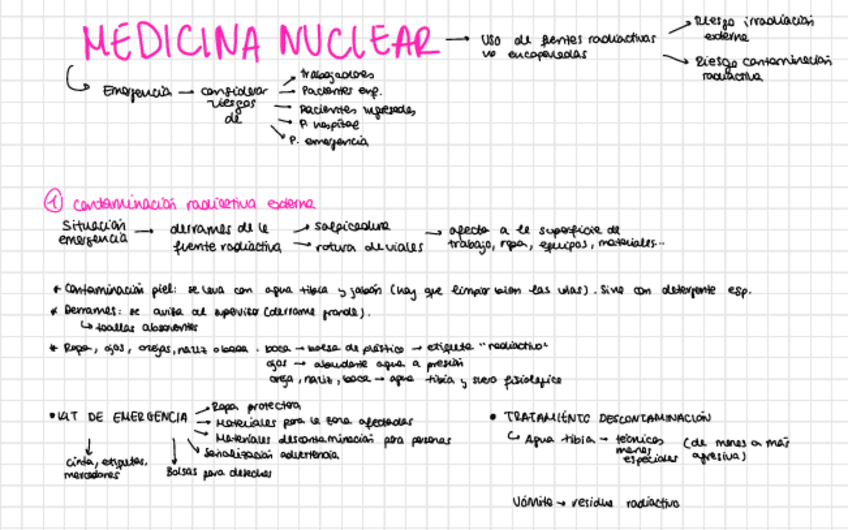 MEDICINA NUCLEAR → uso de fuentes radiactivas no encapsuladas
→ Riesgo irradiación externa
→ Riesgo contaminación radiactiva
Emergencia → considerar riesgos de
→ trabajadores
→ Pacientes exp.
→ pacientes ingresados
→ P. hospital
→ P. emergencia
① contaminación radiactiva externa
Situación emergencia → derrames de la fuente radiactiva
→ salpicadura
→ rotura de viales
→ afecta a la superficie de trabajo, ropa, equipos, materiales...
* Contaminación piel: se lava con agua tibia y jabón (hay que limpiar bien las uñas). Sino con detergente esp.
* Derrames: se avisa al supervisor (derrame grande).
↳ toallas absorventes
* Ropa, ojos, orejas, nariz o boca. boca → bolsa de plástico → etiqueta "radiactivo"
ojos → abundante agua a presión
oreja, nariz, boca → agua tibia y suero fisiológico
• KIT DE EMERGENCIA
→ Ropa protectora
→ Materiales para la zona afectadas
→ Materiales descontaminación para personas
→ Señalización advertencia
→ Bolsas para desechos
→ cinta, etiquetas, marcadores
• TRATAMIENTO DESCONTAMINACIÓN
↳ Agua tibia → técnicas menos especiales (de menos a más agresiva)
Vómito → residuo radiactivo